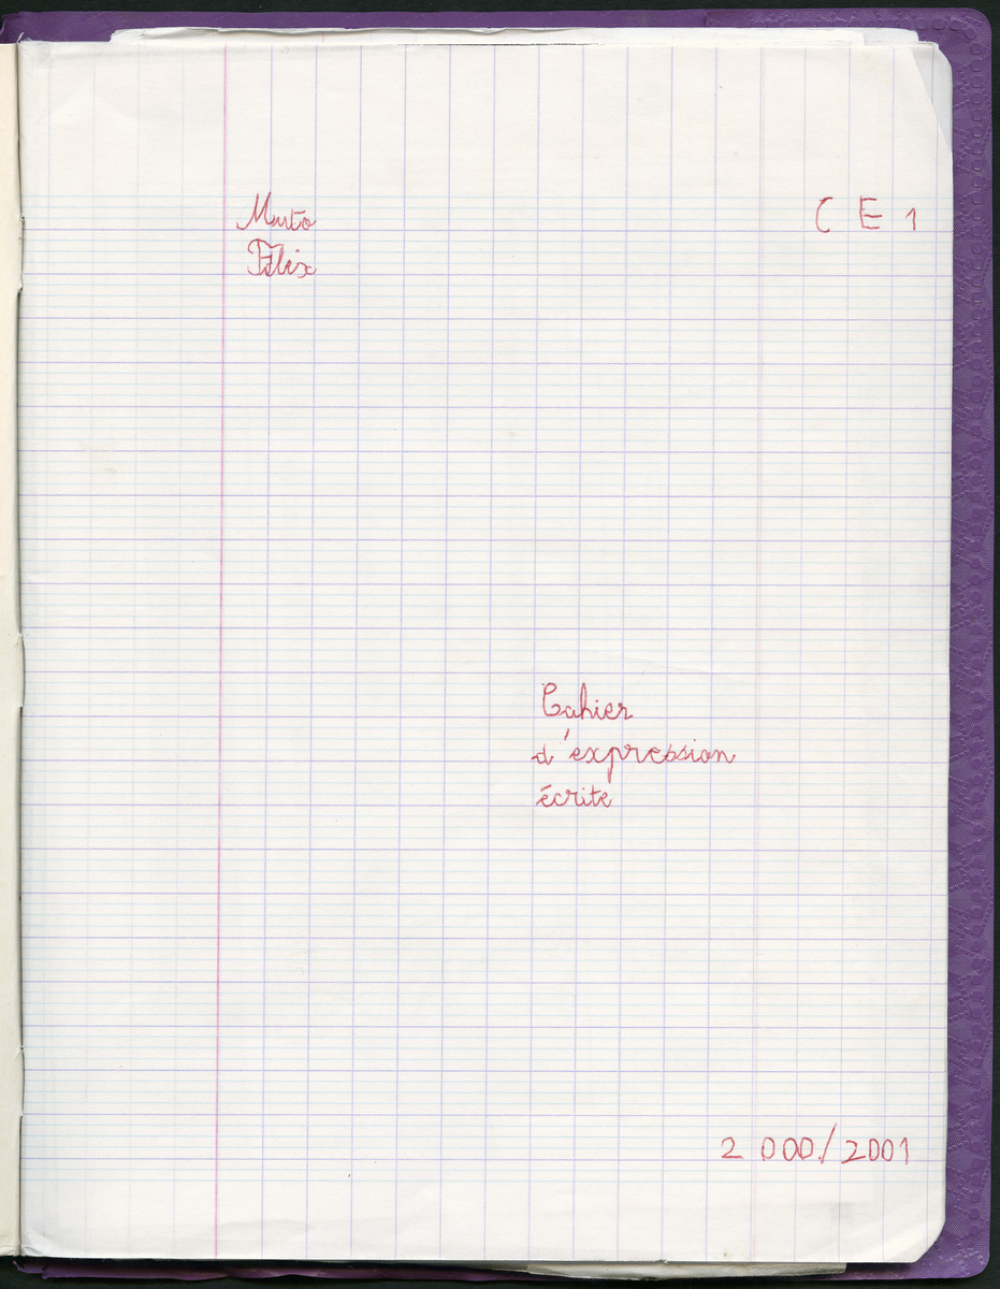 Muto
Félix
C E 1
Cahier
d'expression
écrite
2 000/2001